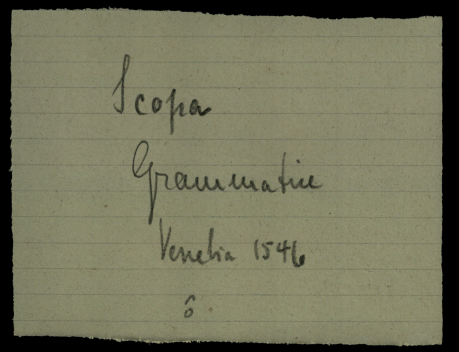 Scopa
Grammatice
Venetia 1546